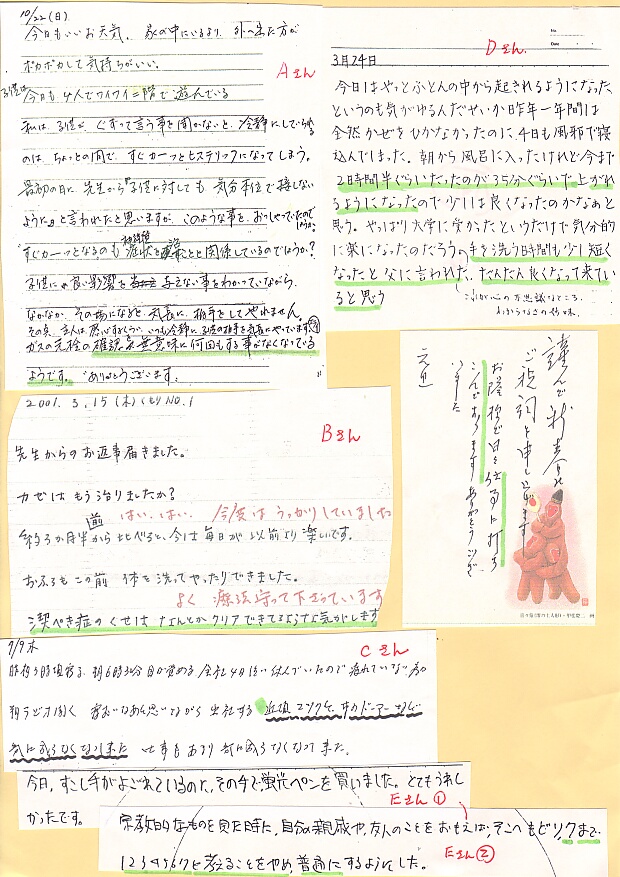 10/22(日)
今日もいいお天気、家の中にいるより、外へ出た方が
ポカポカして気持ちがいい。
Aさん
子供は
今日も4人でワイワイ二階で遊んでいる
私は、子供が、ぐずって言う事を聞かないと、冷静にしていられる
のは、ちょっとの間で、すぐカーッとヒステリックになってしまう。
最初の日に、先生から『子供に対しても、気分本位で接しない
ように』と言われたと思いますが、このような事を、おっしゃっていたので
しょうか?
すぐカーッとなるのも
症状を
と関係しているのでしょうか?
子供に
良い影響を
与えない事をわかっていながら、
なかなか、その場になると、気長に、相手をしてやれません。
その点、主人は感心するくらい、いつも冷静に、子供の相手を気長にやっています
ガスの元栓の確認
無意味に何回もする事がなくなっている
ようです。ありがとうございます。
Dさん
No.
Date
3月24日
今日はやっとふとんの中から起きれるようになった
というのも気がゆるんだせいか昨年一年間は
全然かぜをひかなかったのに、4日も風邪で寝
込んでしまった。朝から風呂に入ったけれど今まで
2時間半ぐらいだったのが35分ぐらいで上がれ
るようになったので少しは良くなったのかなぁと
思う。やっぱり大学に受かったというだけで気分的
に楽になったのだろう。手を洗う時間も少し短く
なったと父に言われた。だんだん良くなって来てい
ると思う
これが心の不思議なところ、
2001.3.15(木)くもり NO.1
Bさん
先生からのお返事届きました。
カゼはもう治りましたか?
はい、はい、今度はうっかりしていました
約3か月半
前
から比べると、今は毎日が以前より楽しいです。
おふろもこの前 体を洗ってやったりできました。
よく療法守って下さっています
潔ぺき症のくせはなんとかクリアできてるような気がします
謹んで新春の
ご祝詞を申し上げます
お陰様で日々仕事に打ち
こんでおります ありがとうござ
いました
元旦
7/9 木
Cさん
昨夜
時頃寝る、朝6時30分目が覚める 会社4日ほど休んでいたので疲れていない為か
朝ラジオ聞く
思いながら出社する 近頃エリクビ、車のドアーさほど
気に成らなくなって来た 仕事もあまり気に成らなくなって来た。
今日、すこし手がよごれているのに、その手で、蛍光ペンを買いました。とてもうれし
かったです。
Eさん①
宗教的なものを見た時に、自分の親戚や、友人のことをおもえば、そこへもどり、クまで
1234567と考えることをやめ、普通にするようにした。
Eさん②